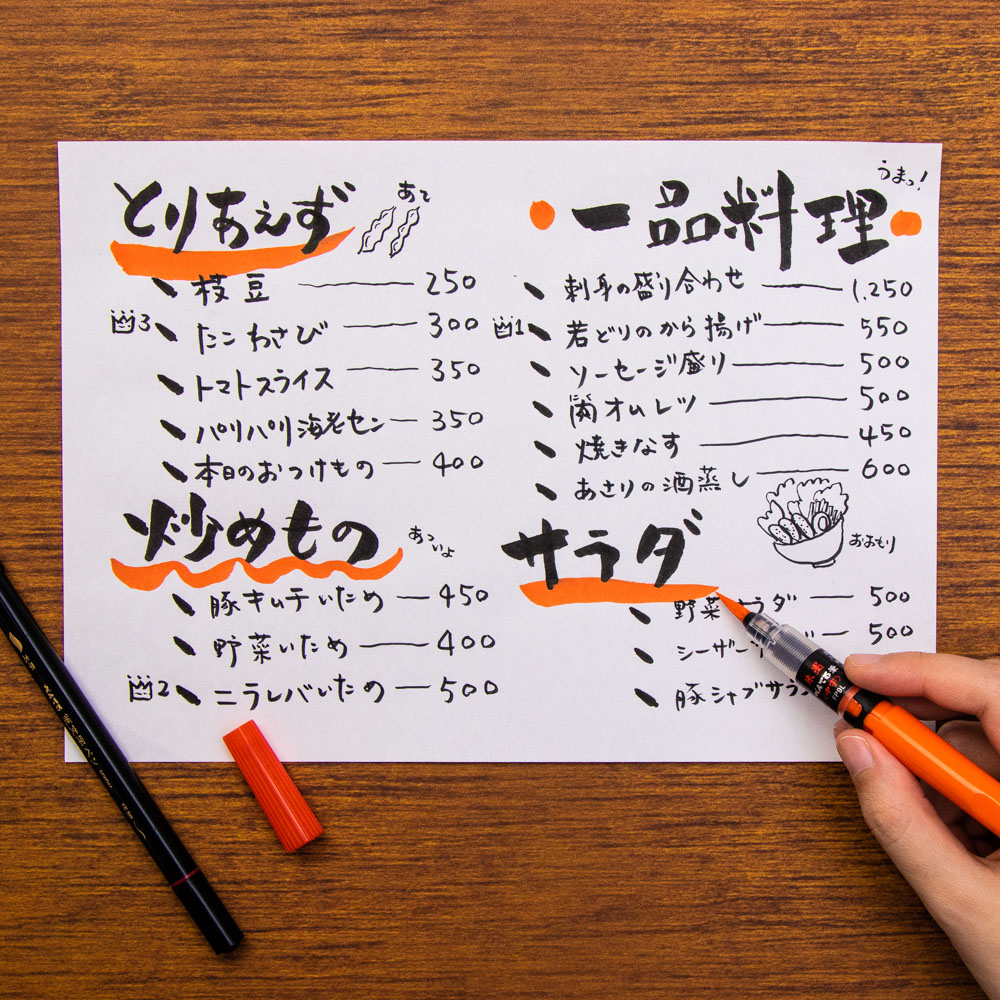 とりあえず
あて
枝豆 250
3 たこわさび 300
トマトスライス 350
パリパリ海老セン 350
本日のおつけもの 400
炒めもの
あっついよ
豚キムチいため 450
野菜いため 400
2 ニラレバいため 500
一品料理
うまっ!
刺身の盛り合わせ 1,250
1 若どりのから揚げ 550
ソーセージ盛り 500
オムレツ 500
焼きなす 450
あさりの酒蒸し 600
サラダ
おおもり
野菜サラダ 500
シーザー 500
豚シャブサラ